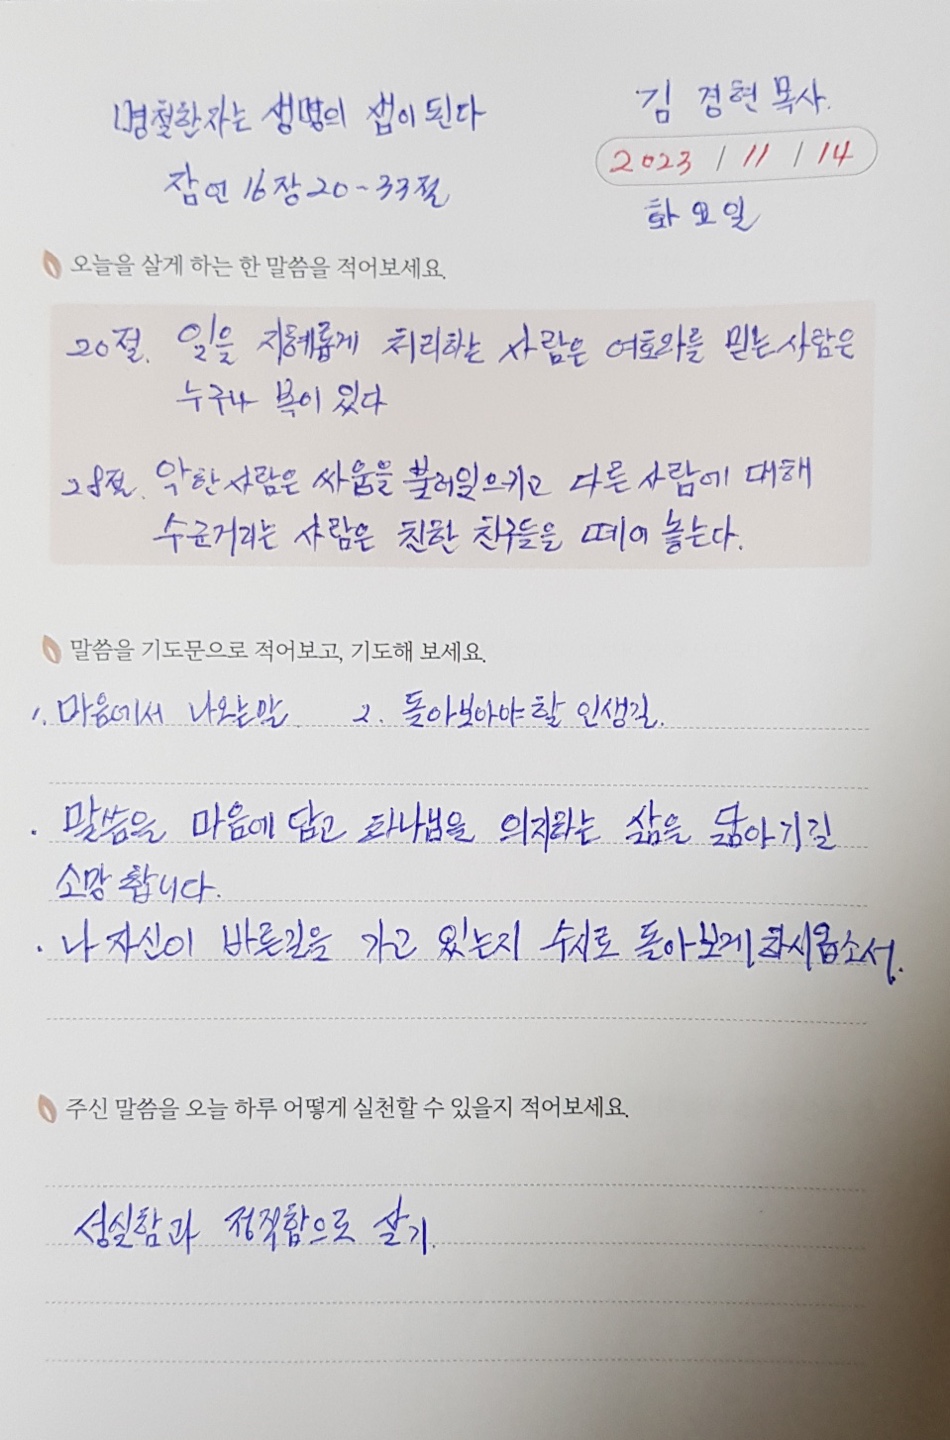 명철한자는 생명의 샘이 된다
김 경현 목사.
잠언 16장 20~33절
2023 / 11 / 14
화요일
오늘을 살게 하는 한 말씀을 적어보세요.
20절. 일을 지혜롭게 처리하는 사람은 여호와를 믿는 사람은
누구나 복이 있다
28절. 악한 사람은 싸움을 불러일으키고 다른 사람에 대해
수군거리는 사람은 친한 친구들을 떼어 놓는다.
말씀을 기도문으로 적어보고, 기도해 보세요.
1. 마음에서 나오는말 2. 돌아보아야 할 인생길.
· 말씀을 마음에 담고 하나님을 의지하는 삶을 닮아가길
소망 합니다.
· 나 자신이 바른길을 가고 있는지 수시로 돌아보게 하시옵소서.
주신 말씀을 오늘 하루 어떻게 실천할 수 있을지 적어보세요.
성실함과 정직함으로 살기.